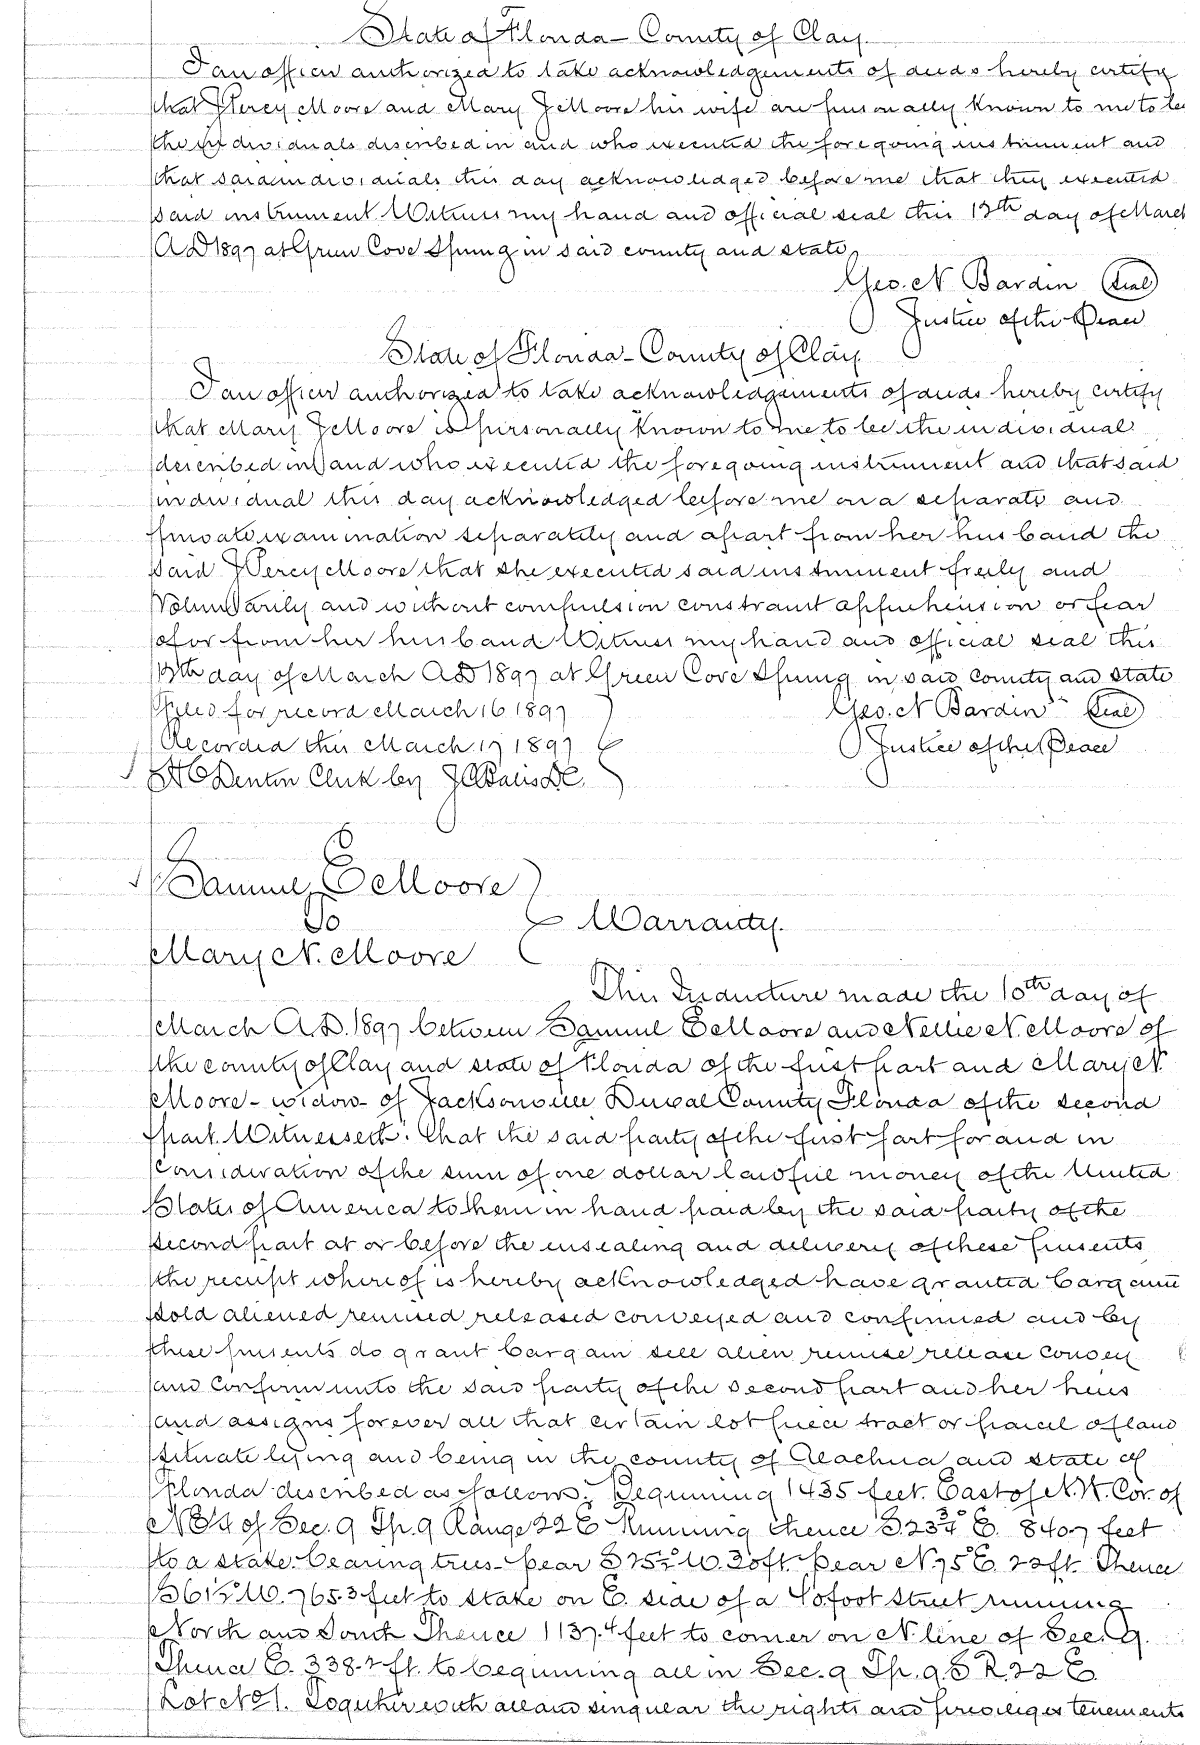 State of Florida - County of Clay.
I an officer authorized to take acknowledgements of deeds hereby certify
that J Percy Moore and Mary J Moore his wife are personally known to me to be
the individuals described in and who executed the foregoing instrument and
that said individuals this day acknowledged before me that they executed
said instrument Witness my hand and official seal this 13th day of March
A D 1897 at Green Cove Spring in said county and state
Geo. N Bardin (Seal)
Justice of the Peace
State of Florida - County of Clay
I an officer authorized to take acknowledgements of deeds hereby certify
that Mary J Moore is personally known to me to be the individual
described in and who executed the foregoing instrument and that said
individual this day acknowledged before me on a separate and
private examination separately and apart from her husband the
said J Percy Moore that she executed said instrument freely and
Voluntarily and without compulsion constraint apprehension or fear
of or from her husband Witness my hand and official seal this
13th day of March A D 1897 at Green Cove Spring in said county and state
Filed for record March 16 1897 Geo. N Bardin (Seal)
Recorded this March 17 1897 Justice of the Peace
Denton Clerk by D.C.
Samuel E Moore
To
Warranty.
Mary N. Moore
This Indenture made the 10th day of
March A.D. 1897 between Samuel E Moore and Nellie N. Moore of
the county of Clay and state of Florida of the first part and Mary N
Moore - widow - of Jacksonville Duval County Florida of the second
part. Witnesseth: that the said party of the first part for and in
consideration of the sum of one dollar lawful money of the United
States of America to them in hand paid by the said party of the
second part at or before the ensealing and delivery of these presents
the receipt whereof is hereby acknowledged have granted bargained
sold aliened remised released conveyed and confirmed and by
these presents do grant bargain sell alien remise release convey
and confirm unto the said party of the second part and her heirs
and assigns forever all that certain lot piece tract or parcel of land
situate lying and being in the county of Alachua and state of
Florida described as follows; Beginning 1435 feet. East of N.W. Cor. of
of Sec. 9 Tp. 9 Range 22 E Running thence S 23¾° E. 840.7 feet
to a stake: bearing trees - pear W. 30 ft. pear N. 75° E. 22 ft. Thence
W. 765.3 feet to stake on E. side of a 40 foot Street running
North and South Thence 1137.4 feet to corner on N line of Sec. 9.
Thence E. 338.2 ft. to beginning all in Sec. 9 Tp. 9. S R. 22 E.
Lot No 1. Together with all and singular the rights and privileges tenements